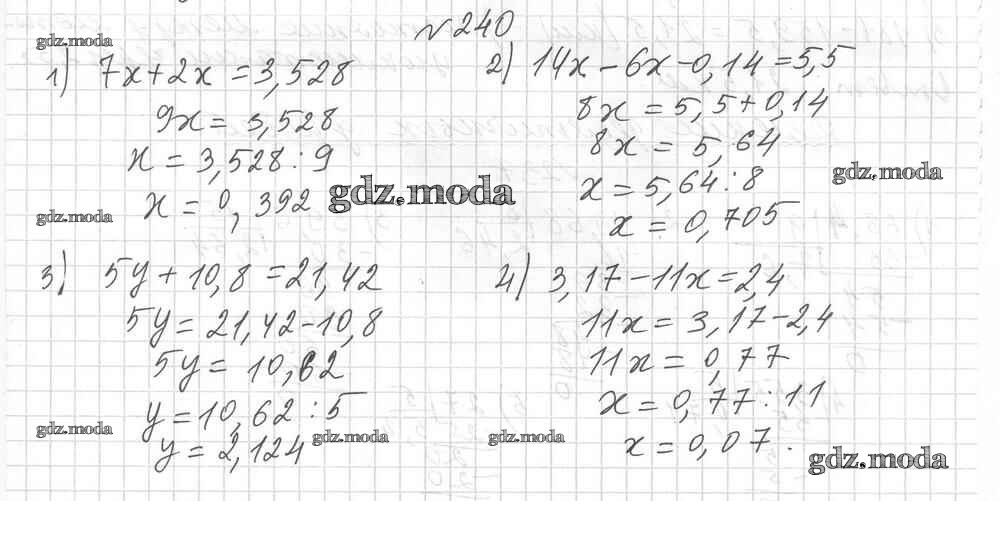 №240
gdz.moda
1) 7x+2x=3,528
9x=3,528
x=3,528:9
x=0,392
gdz.moda
gdz.moda
2) 14x-6x-0,14=5,5
8x=5,5+0,14
8x=5,64
x=5,64:8
gdz.moda
x=0,705
3) 5y+10,8=21,42
5y=21,42-10,8
5y=10,62
y=10,62:5
gdz.moda
y=2,124
gdz.moda
4) 3,17-11x=2,4
11x=3,17-2,4
11x=0,77
x=0,77:11
x=0,07.
gdz.moda
gdz.moda